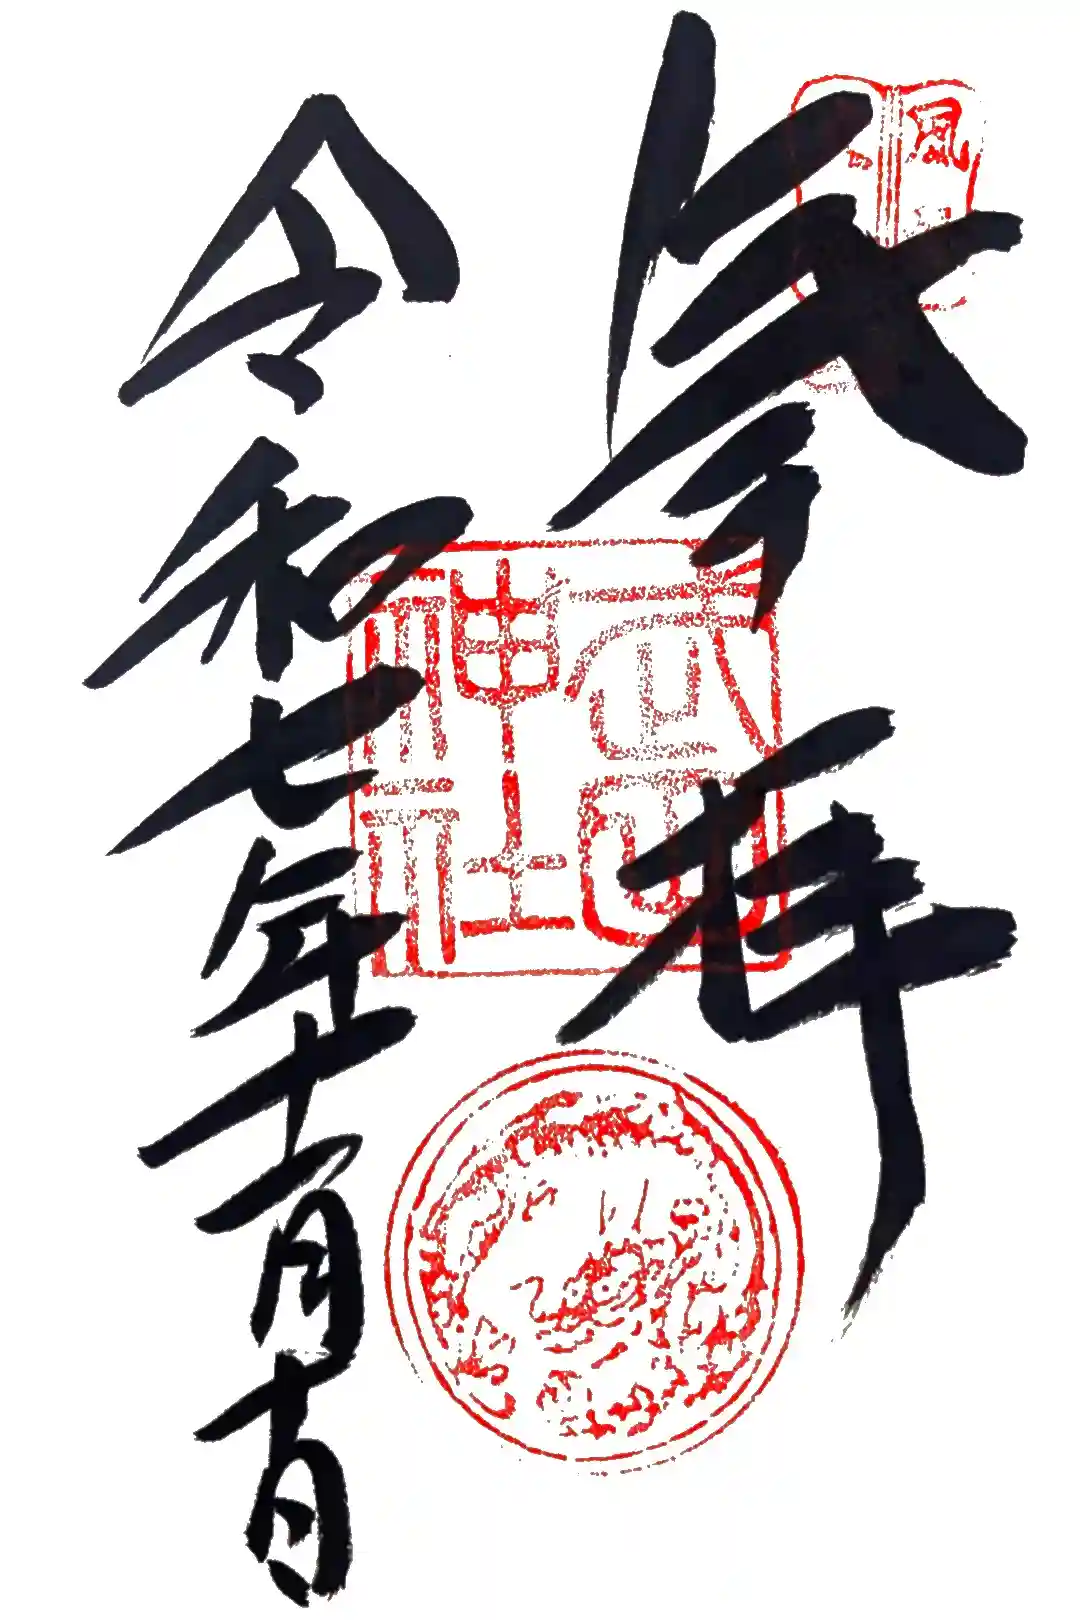 奉拝
風
武田
神社
令和七年十一月十日